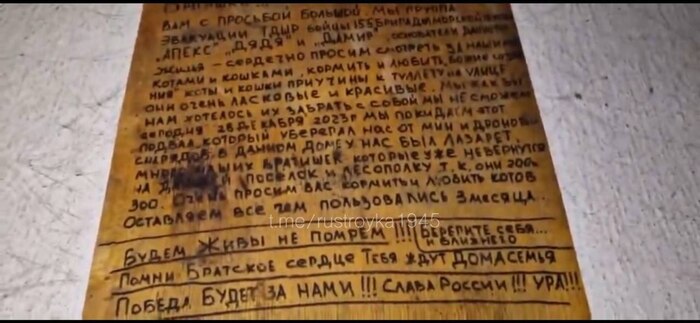 ВАМ С ПРОСЬБОЙ БОЛЬШОЙ. МЫ ГРУППА
ЭВАКУАЦИИ ТДШР БОЙЦЫ 155 БРИГАДЫ МОРСКОЙ
"АПЕКС" "ДЯДЯ" И "ДАМИР" ОСНОВАТЕЛИ
ЖИЛЬЯ - СЕРДЕЧНО ПРОСИМ СМОТРЕТЬ ЗА НАШИМИ
КОТАМИ И КОШКАМИ, КОРМИТЬ И ЛЮБИТЬ, БОЖИЕ
НИЯ" КОТЫ И КОШКИ ПРИУЧИНЫ К ТУЛЛЕТУ НА УЛИЦЕ
ОНИ ОЧЕНЬ ЛАСКОВЫЕ И КРАСИВЫЕ. МЫ КАК БЫ
НАМ ХОТЕЛОСЬ ИХ ЗАБРАТЬ С СОБОЙ МЫ НЕ СМОЖЕМ
СЕГОДНЯ 28 ДЕКАБРЯ 2023Г МЫ ПОКИДАЕМ ЭТОТ
ПОДВАЛ КОТОРЫЙ УБЕРЕГАЛ НАС ОТ МИН И ДРОНОВ
СНАРЯДОВ В ДАННОМ ДОМЕ У НАС БЫЛ ЛАЗАРЕТ.
БРАТИШЕК КОТОРЫЕ УЖЕ НЕВЕРНУТСЯ
НА ПОСЕЛОК И ЛЕСОПОЛКУ Т.К. ОНИ 200Ь
300. ОЧЕНЬ ПРОСИМ ВАС КОРМИТЬ И ЛЮБИТЬ КОТОВ
ОСТАВЛЯЕМ ВСЕ ЧЕМ ПОЛЬЗОВАЛИСЬ 3 МЕСЯЦА...
t.me/rustroyka1945
БУДЕМ ЖИВЫ НЕ ПОМРЕМ!!! БЕРЕГИТЕ СЕБЯ...
И БЛИЖНЕГО
ПОМНИ БРАТСКОЕ СЕРДЦЕ ТЕБЯ ЖДУТ ДОМА СЕМЬЯ
ПОБЕДА БУДЕТ ЗА НАМИ!!! СЛАВА РОССИИ!!! УРА!!!